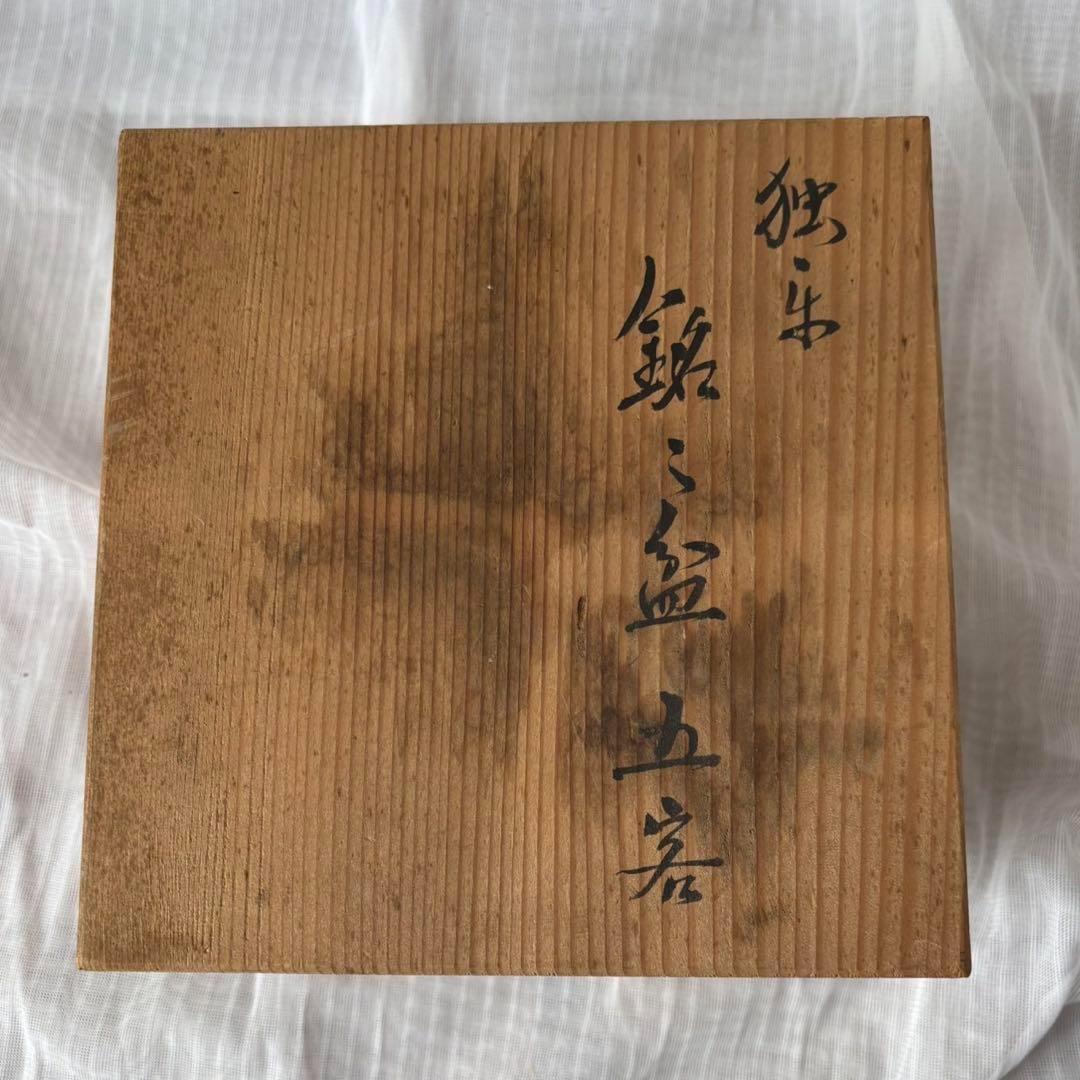 独楽
銘々盆 五客